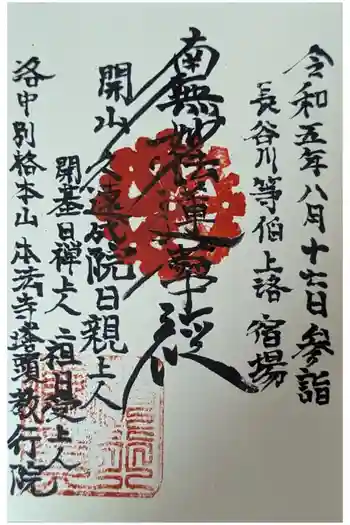 令和五年八月十七日参詣
長谷川等伯上洛宿場
南無妙法蓮華経
開山久遠成院日親上人
開基日禅上人 二祖日尭上人
洛中別格本山本法寺塔頭教行院